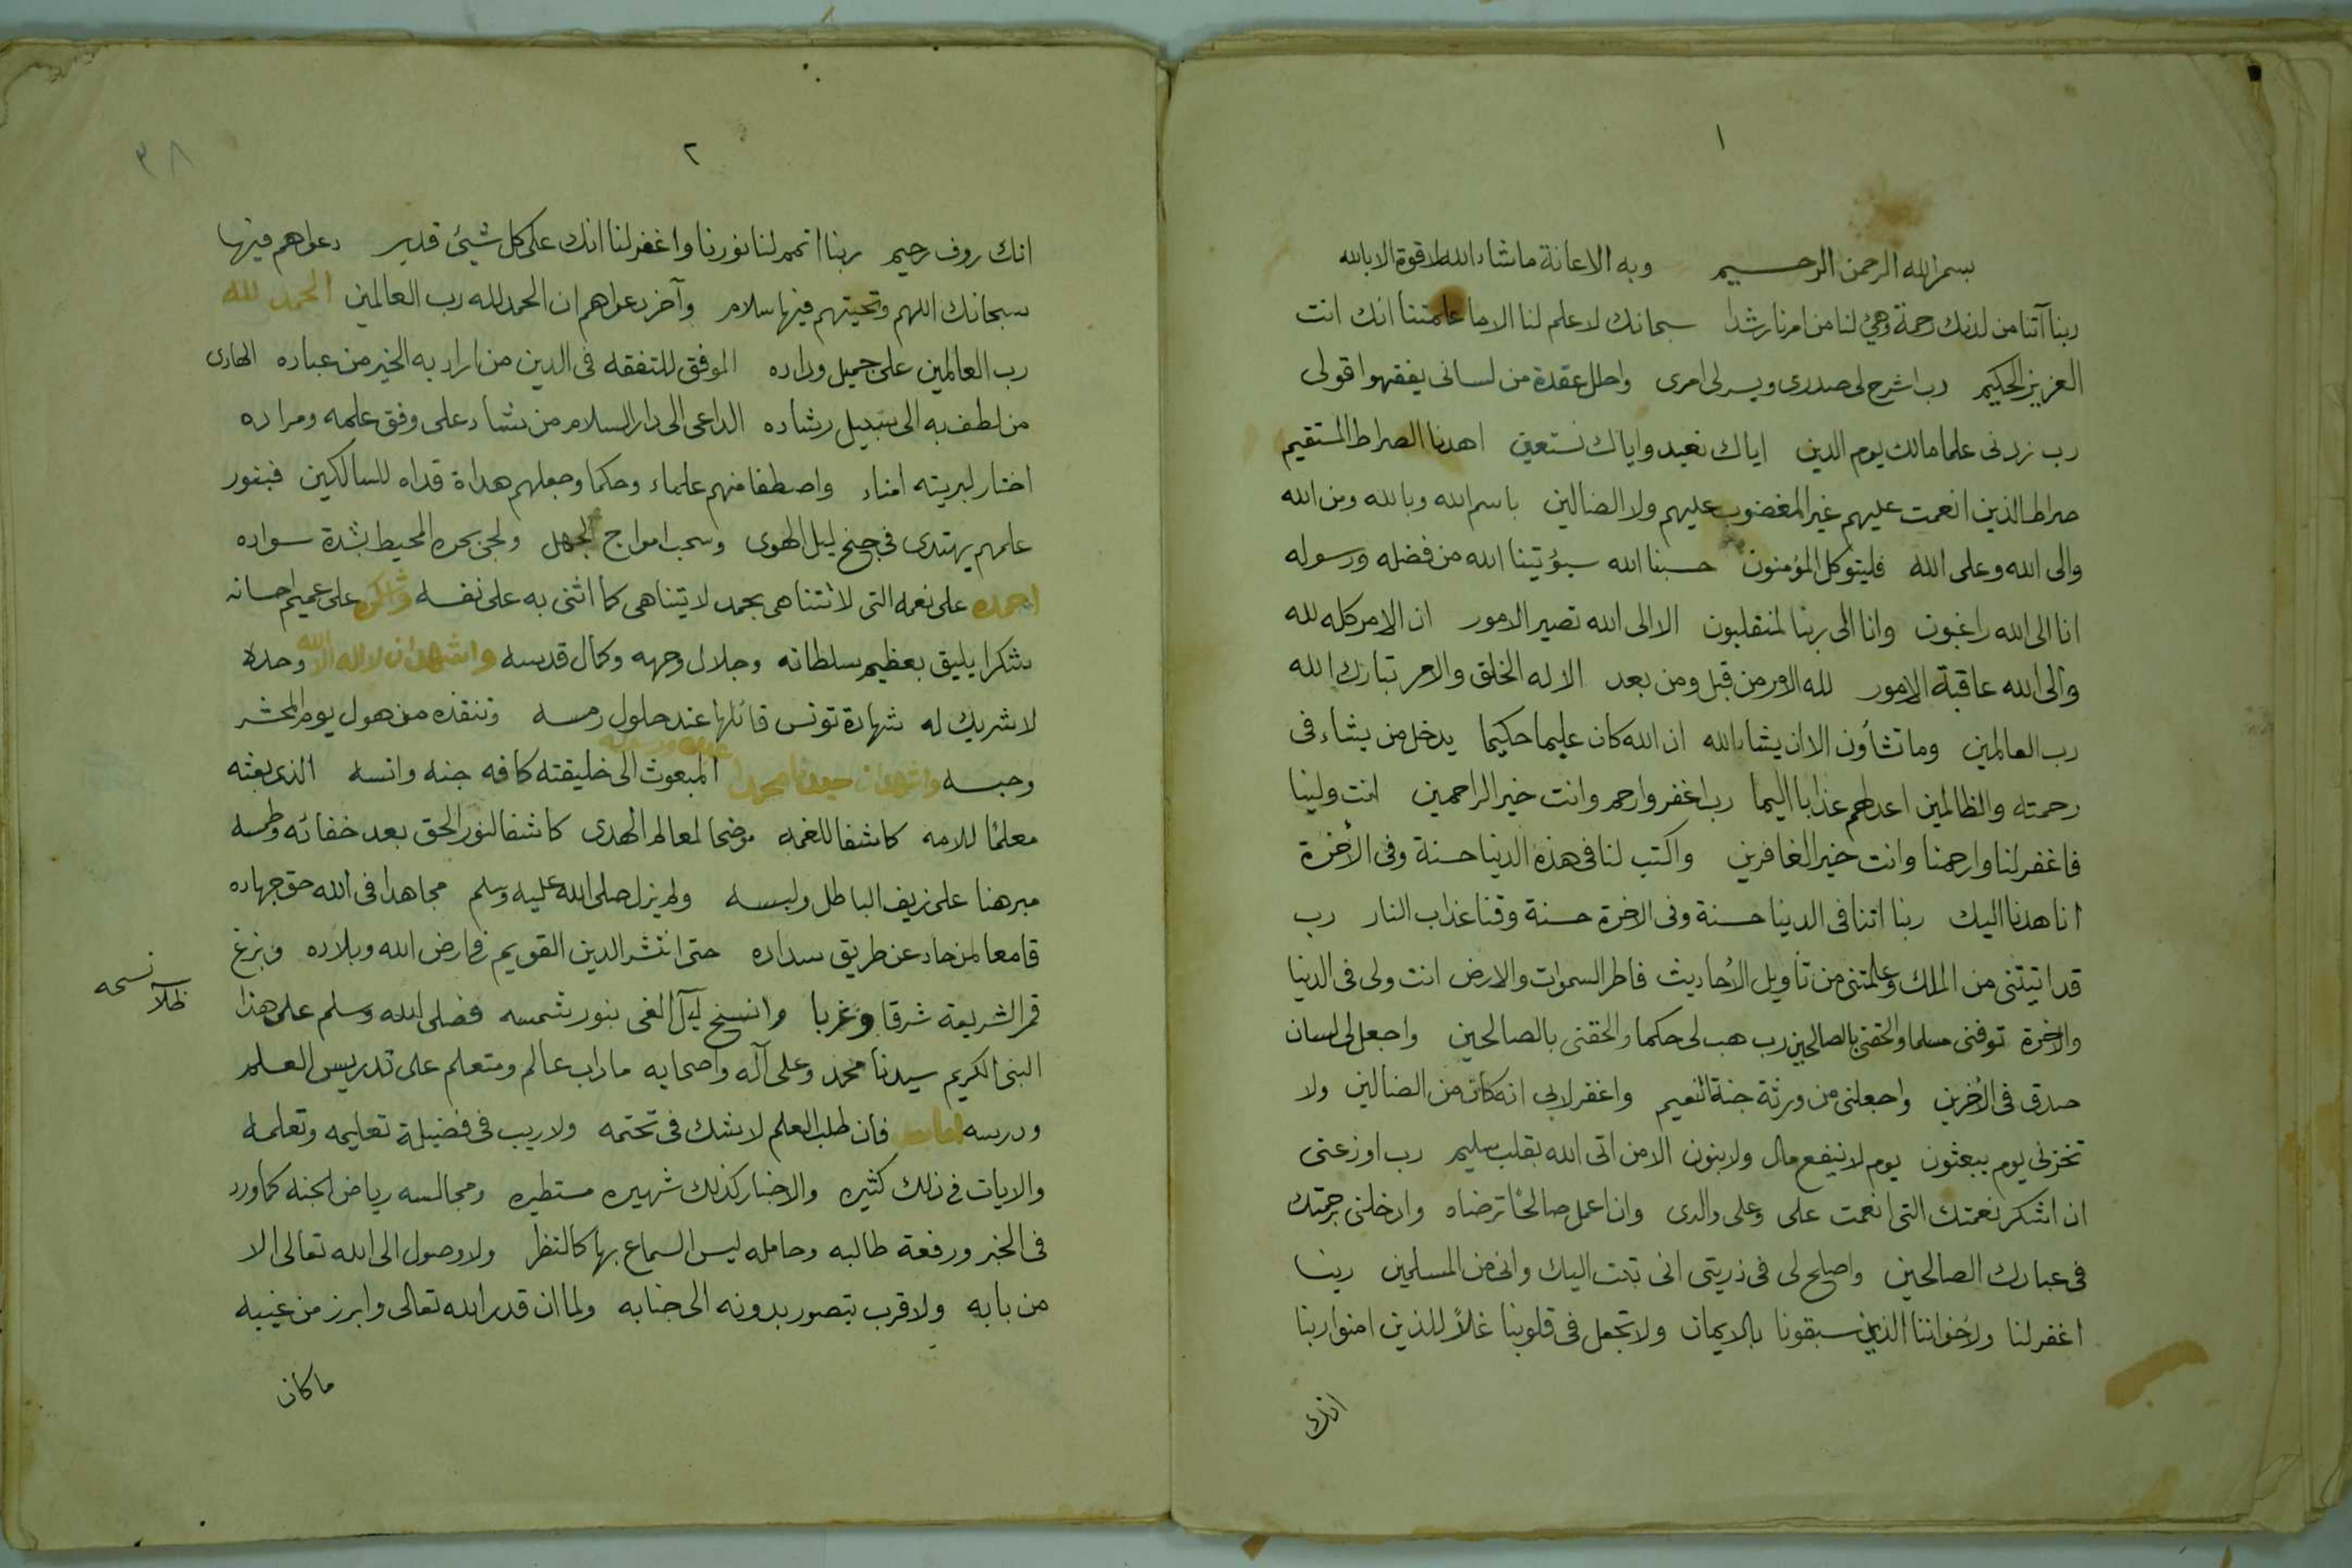 ١
بسم الله الرحمن الرحـــيم وبه الاعانة ماشاء الله لا قوة الا بالله
ربنا آتنا من لدنك رحمة وهيئ لنا من امرنا رشدا سبحانك لا علم لنا الا ما علمتنا انك انت
العزيز الحكيم رب اشرح لى صدرى ويسر لى امرى واحلل عقدة من لسانى يفقهوا قولى
رب زدنى علما مالك يوم الدين اياك نعبد واياك نستعين اهدنا الصراط المستقيم
صراط الذين انعمت عليهم غير المغضوب عليهم ولا الضالين باسم الله وبالله ومن الله
والى الله وعلى الله فليتوكل المؤمنون حسبنا الله سيؤتينا الله من فضله ورسوله
انا الى الله راغبون وانا الى ربنا لمنقلبون الا الى الله تصير الامور ان الامر كله لله
والى الله عاقبة الامور لله الامر من قبل ومن بعد الا له الخلق والامر تبارك الله
رب العالمين وما تشأون الا ان يشاء الله ان الله كان عليما حكيما يدخل من يشاء فى
رحمته والظالمين اعد لهم عذابا اليما رب اغفر وارحم وانت خير الراحمين انت ولينا
فاغفر لنا وارحمنا وانت خير الغافرين واكتب لنا فى هذه الدنيا حسنة وفى الأخرة
انا هدنا اليك ربنا اتنا فى الدنيا حسنة وفى الاخرة حسنة وقنا عذاب النار رب
قد اتيتنى من الملك وعلمتنى من تأويل الأحاديث فاطر السموات والارض انت ولى فى الدنيا
والاخرة توفنى مسلما والحقنى بالصالحين رب هب لى حكما والحقنى بالصالحين واجعل لى لسان
صدق فى الأخرين واجعلنى من ورثة جنة النعيم واغفر لابى انه كان من الضالين ولا
تخزنى يوم يبعثون يوم لا ينفع مال ولا بنون الا من اتى الله بقلب سليم رب اوزعنى
ان اشكر نعمتك التى انعمت على وعلى والدى وان اعمل صالحًا ترضاه وادخلنى برحمتك
فى عبادك الصالحين واصلح لى فى ذريتى انى تبت اليك وانى من المسلمين ربنا
اغفر لنا ولأخواننا الذين سبقونا بالايمان ولا تجعل فى قلوبنا غلاً للذين امنوا ربنا
انك
٢
٣٨
انك روف رحيم ربنا اتمم لنا نورنا واغفر لنا انك على كل شيئ قدير دعواهم فيها
سبحانك اللهم وتحيتهم فيها سلام وآخر دعواهم ان الحمد لله رب العالمين الحمد لله
رب العالمين على جميل وداده الموفق للتفقه فى الدين من اراد به الخير من عباده الهادى
من لطف به الى سبيل رشاده الداعى الى دار السلام من شاء على وفق علمه ومراده
اختار لبريته امناء واصطفا منهم علماء وحكما وجعلهم هداة قداه للسالكين فبنور
علمهم يهتدى فى جنح ليل الهوى وسحب امواج الجهل ولجى بحره المحيط بشدة سواده
احمده على نعمه التى لا تتناهى بحمد لا يتناهى كما اثنى به على نفسه واشكره على عميم احسانه
شكرا يليق بعظيم سلطانه وجلال وجهه وكمال قدسه واشهد ان لا اله الا الله وحده
لا شريك له شهادة تونس قائلها عند حلول رمسه وتنقذه من هول يوم المحشر
وحبسه واشهد ان سيدنا محمدا عبده ورسوله المبعوث الى خليقته كافه جنه وانسه الذى بعثه
معلمًا للامه كاشفا للغمه موضحا لمعالم الهدى كاشفا لنور الحق بعد خفائه وطمسه
مبرهنا على زيف الباطل ولبسه ولم يزل صلى الله عليه وسلم مجاهدا فى الله حق جهاده
قامعا لمن حاد عن طريق سداده حتى انتشر الدين القويم فى ارض الله وبلاده وبزغ
قمر الشريعة شرقا وغربا وانسخ ليل الغى بنور شمسه فصلى الله وسلم على هذا
نسخه
النبى الكريم سيدنا محمد وعلى آله واصحابه ما داب عالم ومتعلم على تدريس العلم
ودرسه اما بعد فان طلب العلم لا يشك فى تحتمه ولا ريب فى فضيلة تعليمه وتعلمه
والايات فى ذلك كثيره والاخبار كذلك شهيره مستطيره ومجالسه رياض الجنه كما ورد
فى الخبر ورفعة طالبه وحامله ليس السماع بها كالنظر ولا وصول الى الله تعالى الا
من بابه ولا قرب يتصور بدونه الى جنابه ولما ان قدر الله تعالى وابرز من غيبه
ما كان